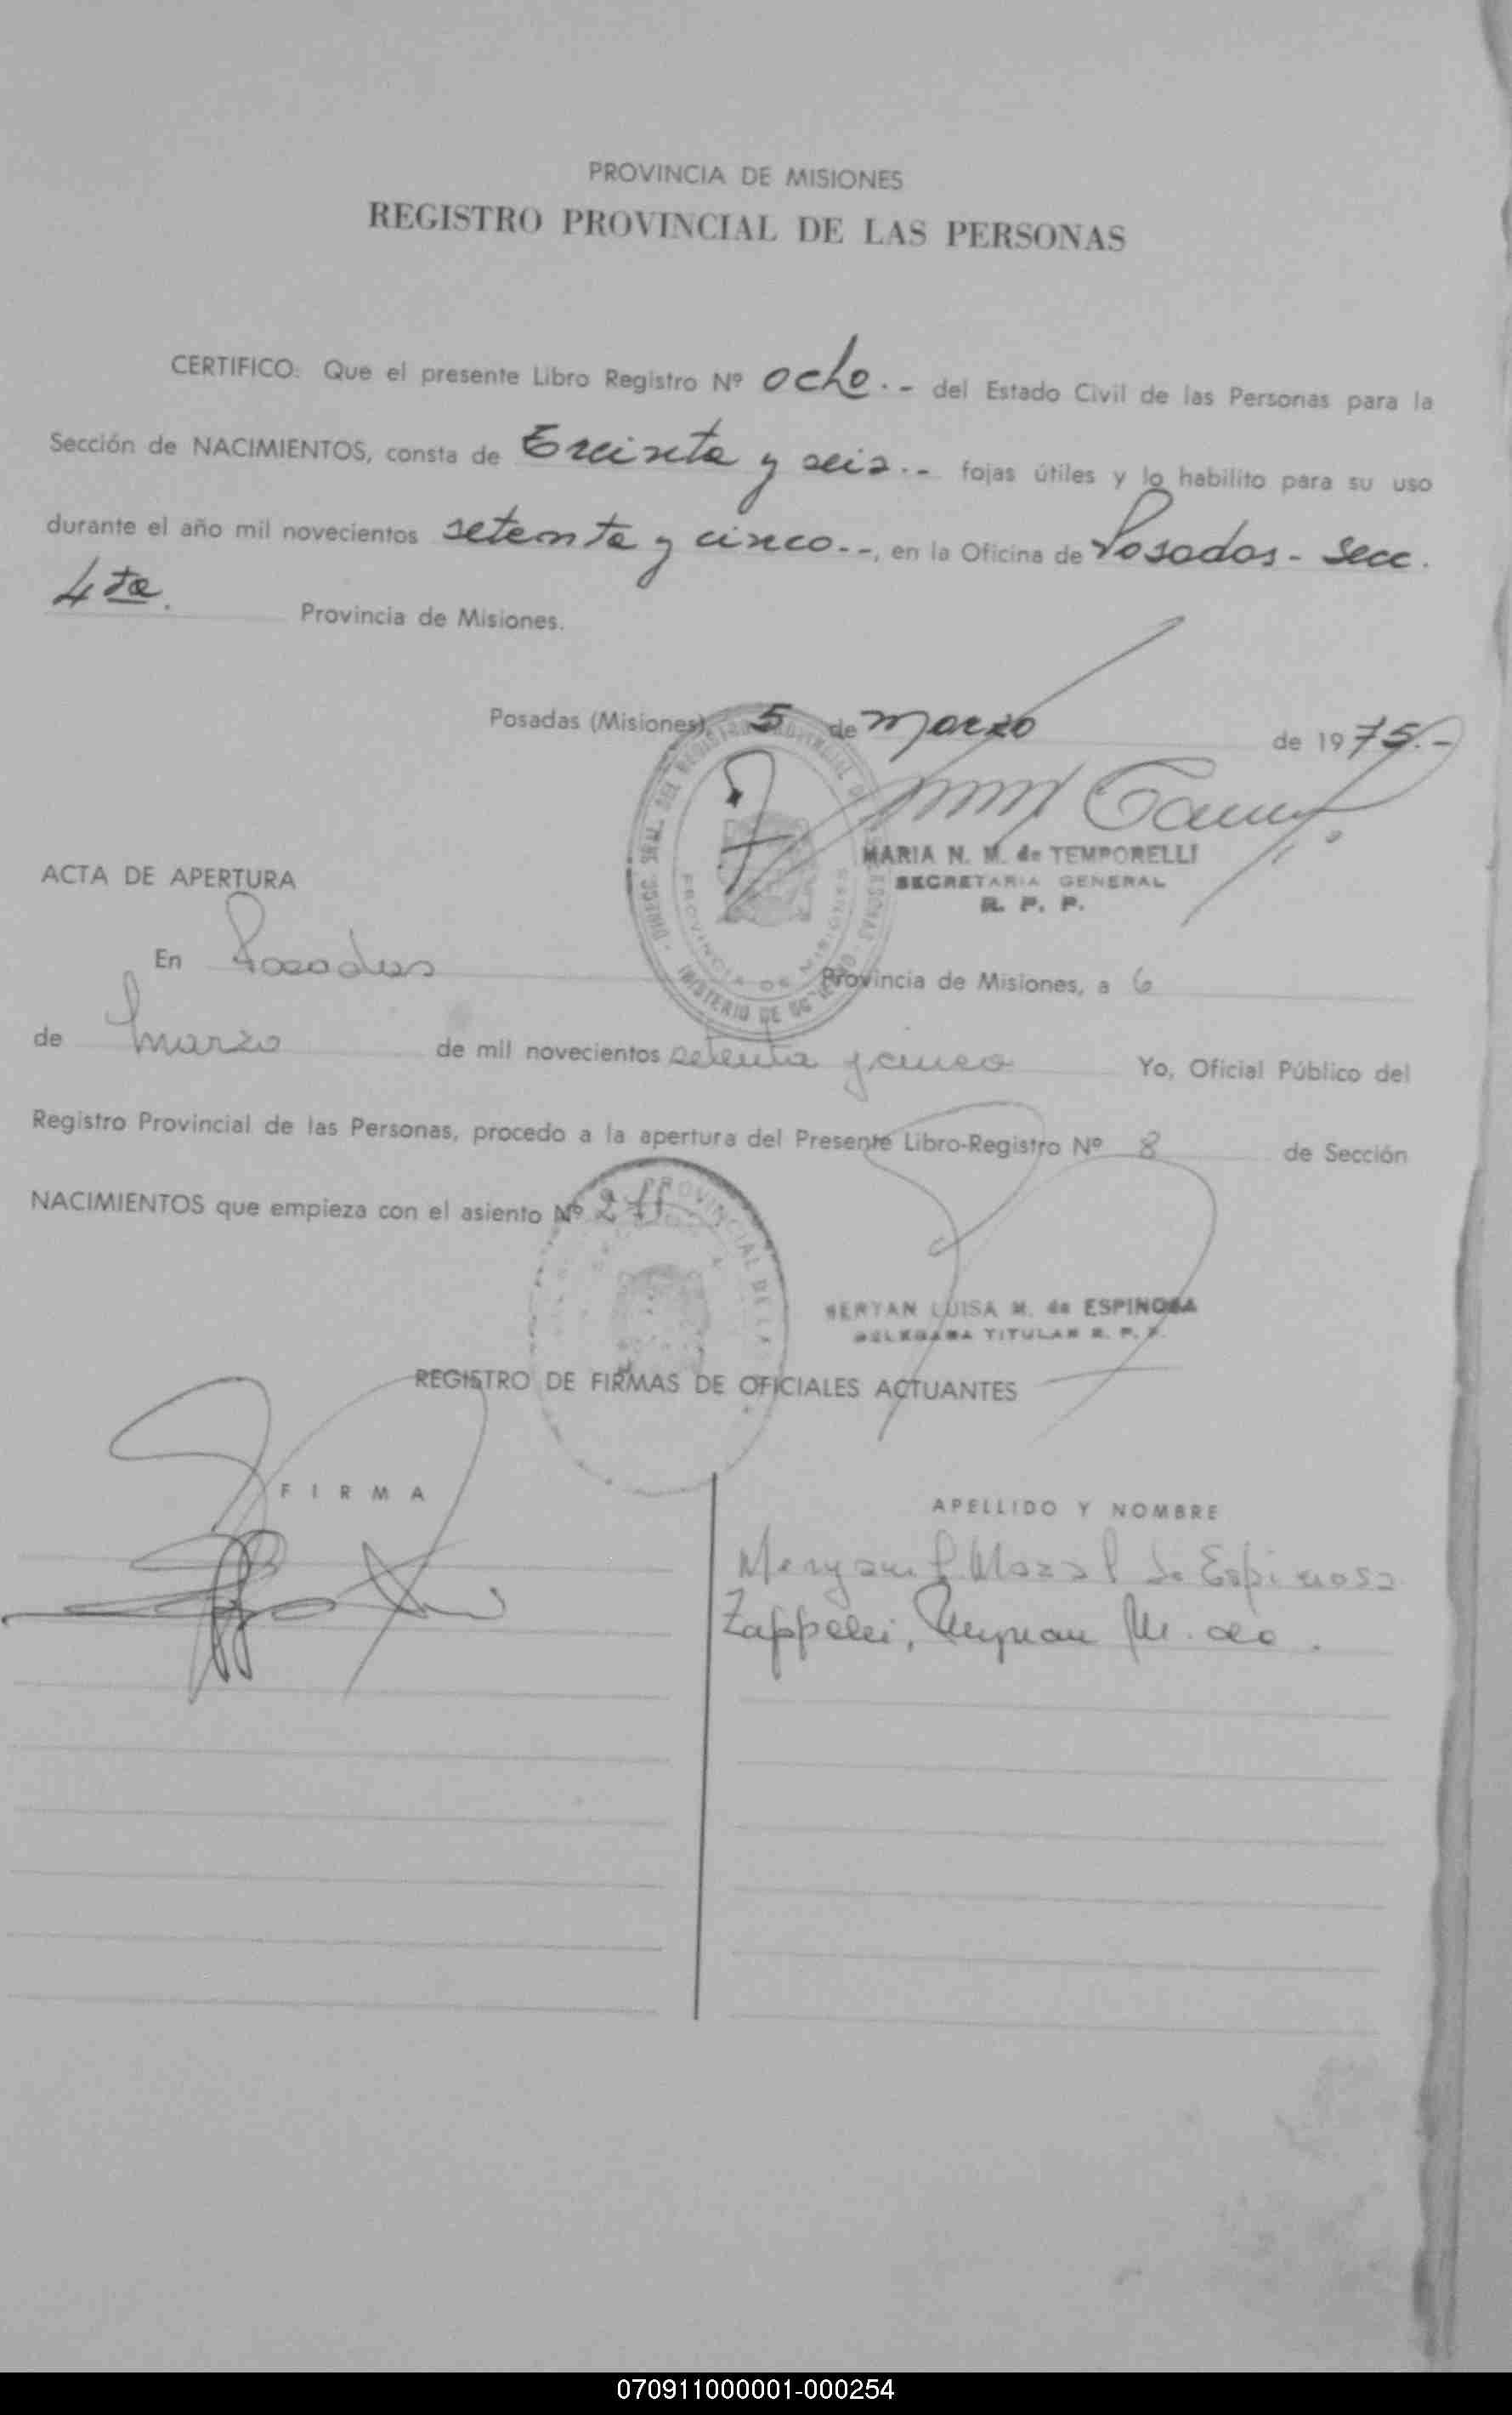 PROVINCIA DE MISIONES
REGISTRO PROVINCIAL DE LAS PERSONAS
CERTIFICO: Que el presente Libro Registro Nº ocho.- del Estado Civil de las Personas para la
Sección de NACIMIENTOS, consta de Treinta y seis.- fojas útiles y lo habilito para su uso
durante el año mil novecientos setenta y cinco.-, en la Oficina de Posadas - Secc.
4ta. Provincia de Misiones.
Posadas (Misiones), 5 de Marzo de 1975.-
MARIA N. M. de TEMPORELLI
SECRETARIA GENERAL
R. P. P.
ACTA DE APERTURA
En Posadas Provincia de Misiones, a 6
de Marzo de mil novecientos setenta y cinco Yo, Oficial Público del
Registro Provincial de las Personas, procedo a la apertura del Presente Libro-Registro Nº 8 de Sección
NACIMIENTOS que empieza con el asiento Nº
LUISA M. de ESPINOSA
TITULAR R. P. P.
REGISTRO DE FIRMAS DE OFICIALES ACTUANTES
FIRMA
APELLIDO Y NOMBRE
de Espinosa
Zappelli, M. de.
070911000001-000254